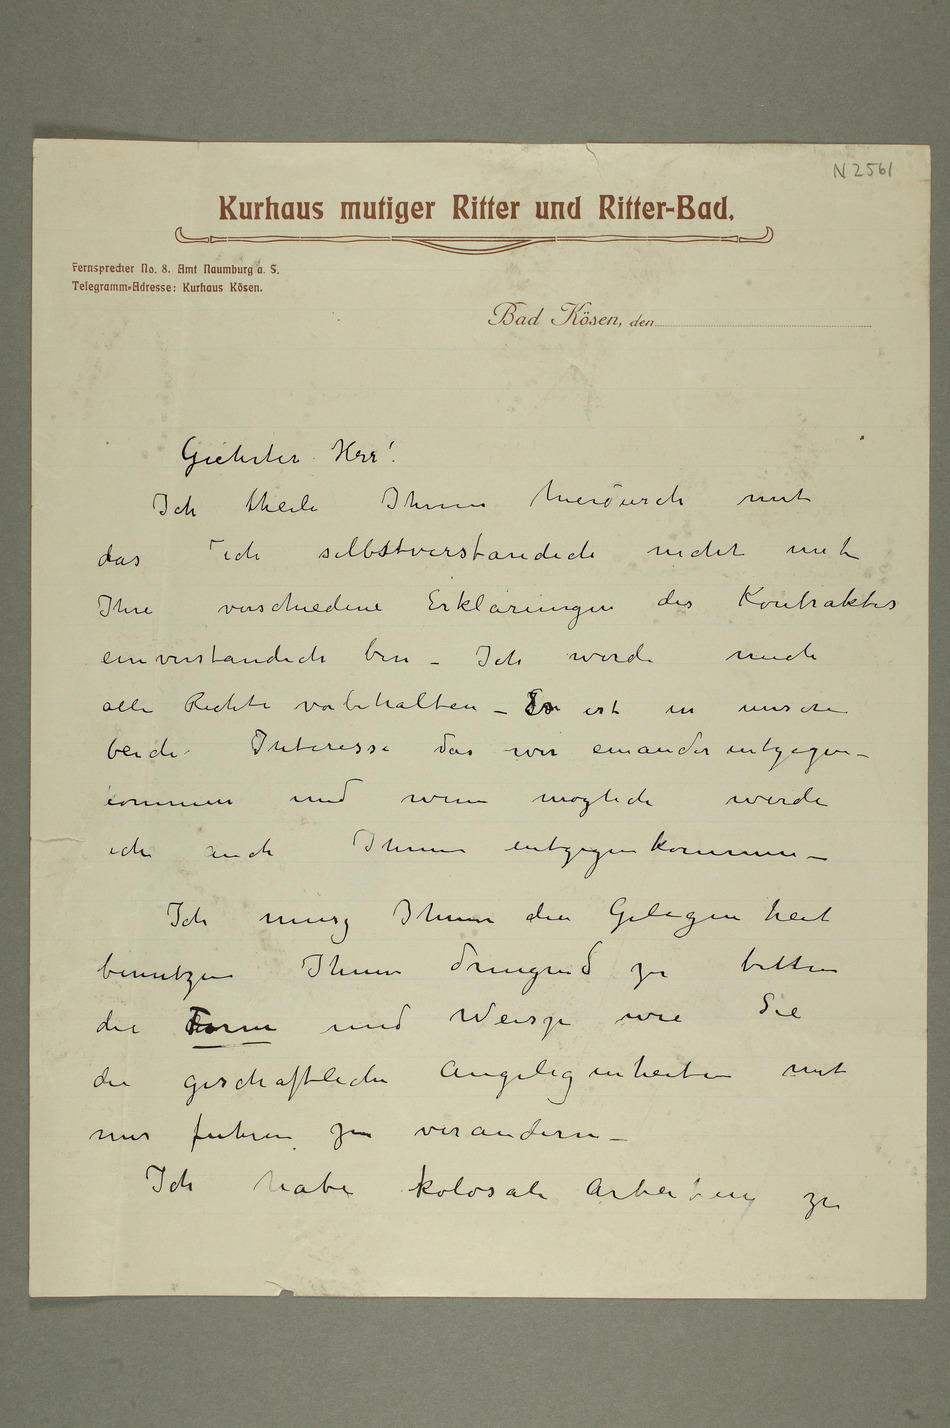 N 2561
Kurhaus mutiger Ritter und Ritter-Bad.
Fernsprecher No. 8. Amt Naumburg a. S.
Telegramm-Adresse: Kurhaus Kösen.
Bad Kösen, den
Geehrter Herr!
Ich theile Ihnen hierdurch mit
das ich selbstverstandlich nicht mit
Ihre verschiedene Erklärungen des Kontraktes
einverstandich bin – Ich werde mich
alle Rechte vorbehalten – Es ist in unsere
beide Interesse das wir einander entgegen–
kommen und wenn moglich werde
ich auch Ihnen entgegenkommen –
Ich musz Ihnen die Gelegenheit
benützen Ihnen dringend zu bitten
die Form und Weisze wie Sie
die geschäftliche Angelegenheiten mit
mir fuhren zu verandern –
Ich habe kolosale Arbeiten zu